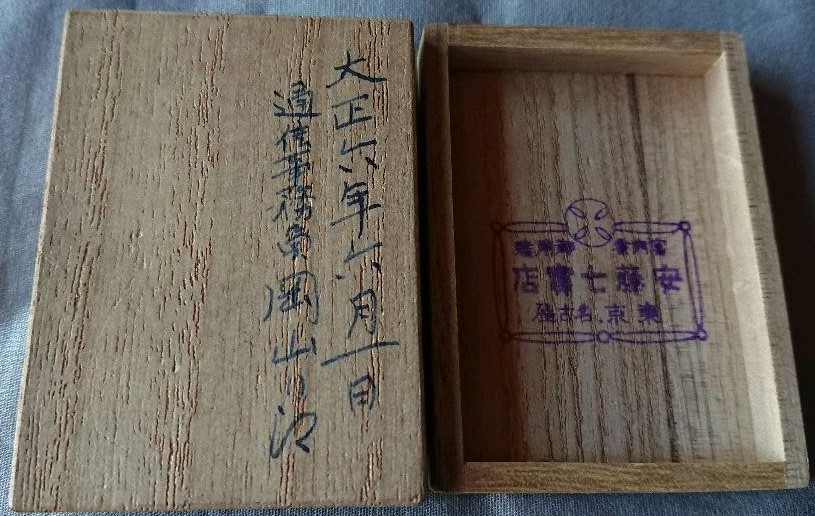 大正六年六月一日
通信事務 岡山
宮内省 御用達
安藤七寶店
東京.名古屋